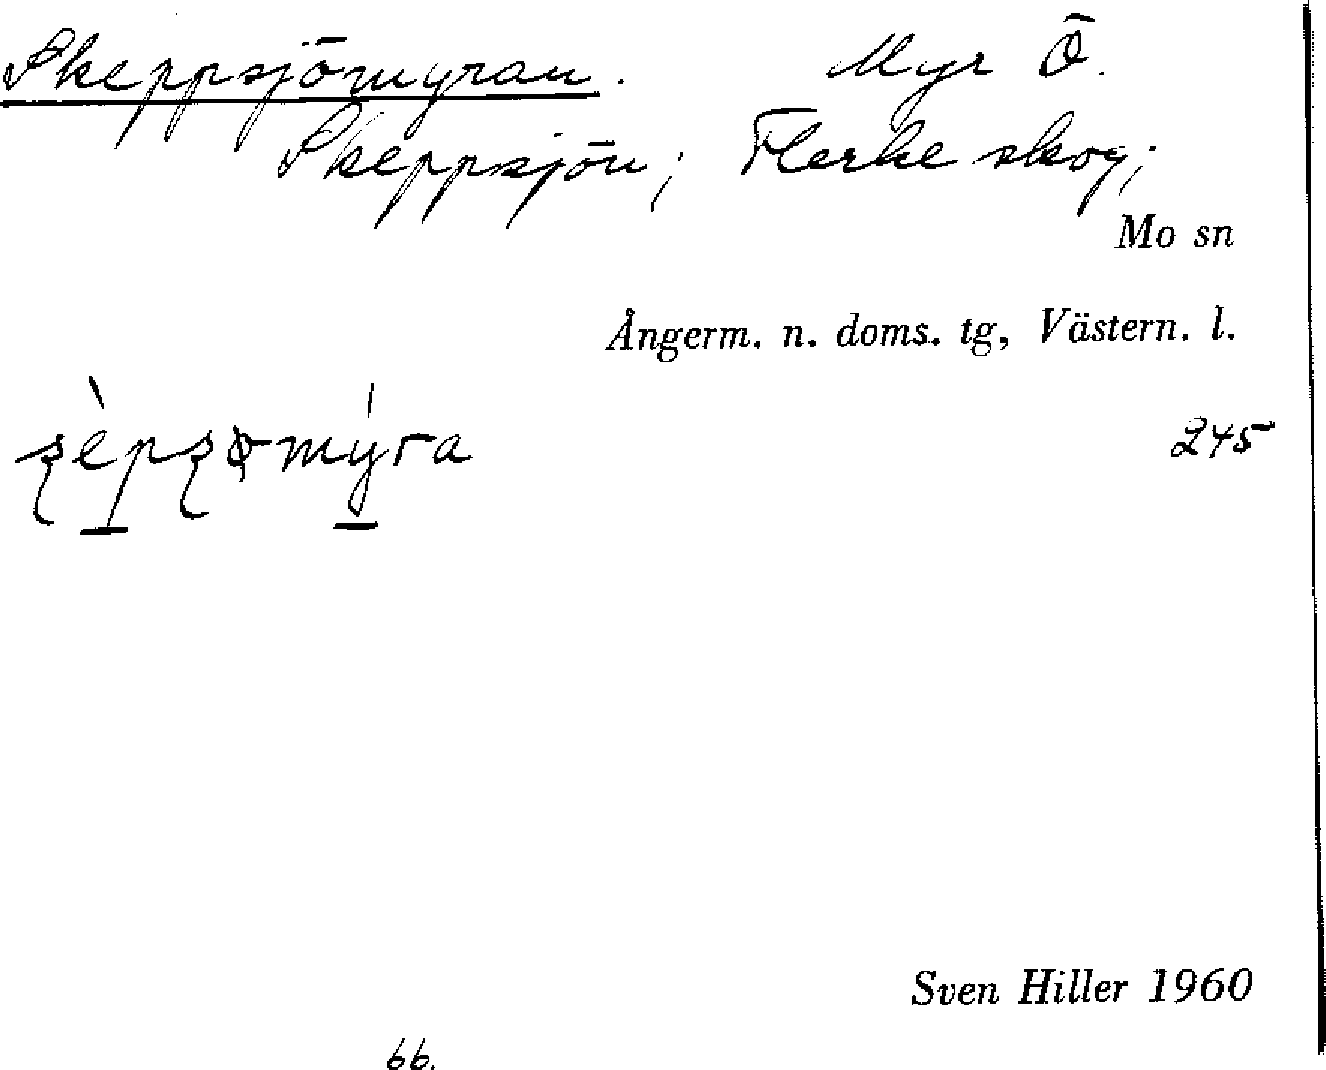 Skeppsjömyran. Myr Ö.
Skeppsjön; Flerke skog;
Mo sn
Ångerm. n. doms. tg, Västern. l.
245
Sven Hiller 1960
66.